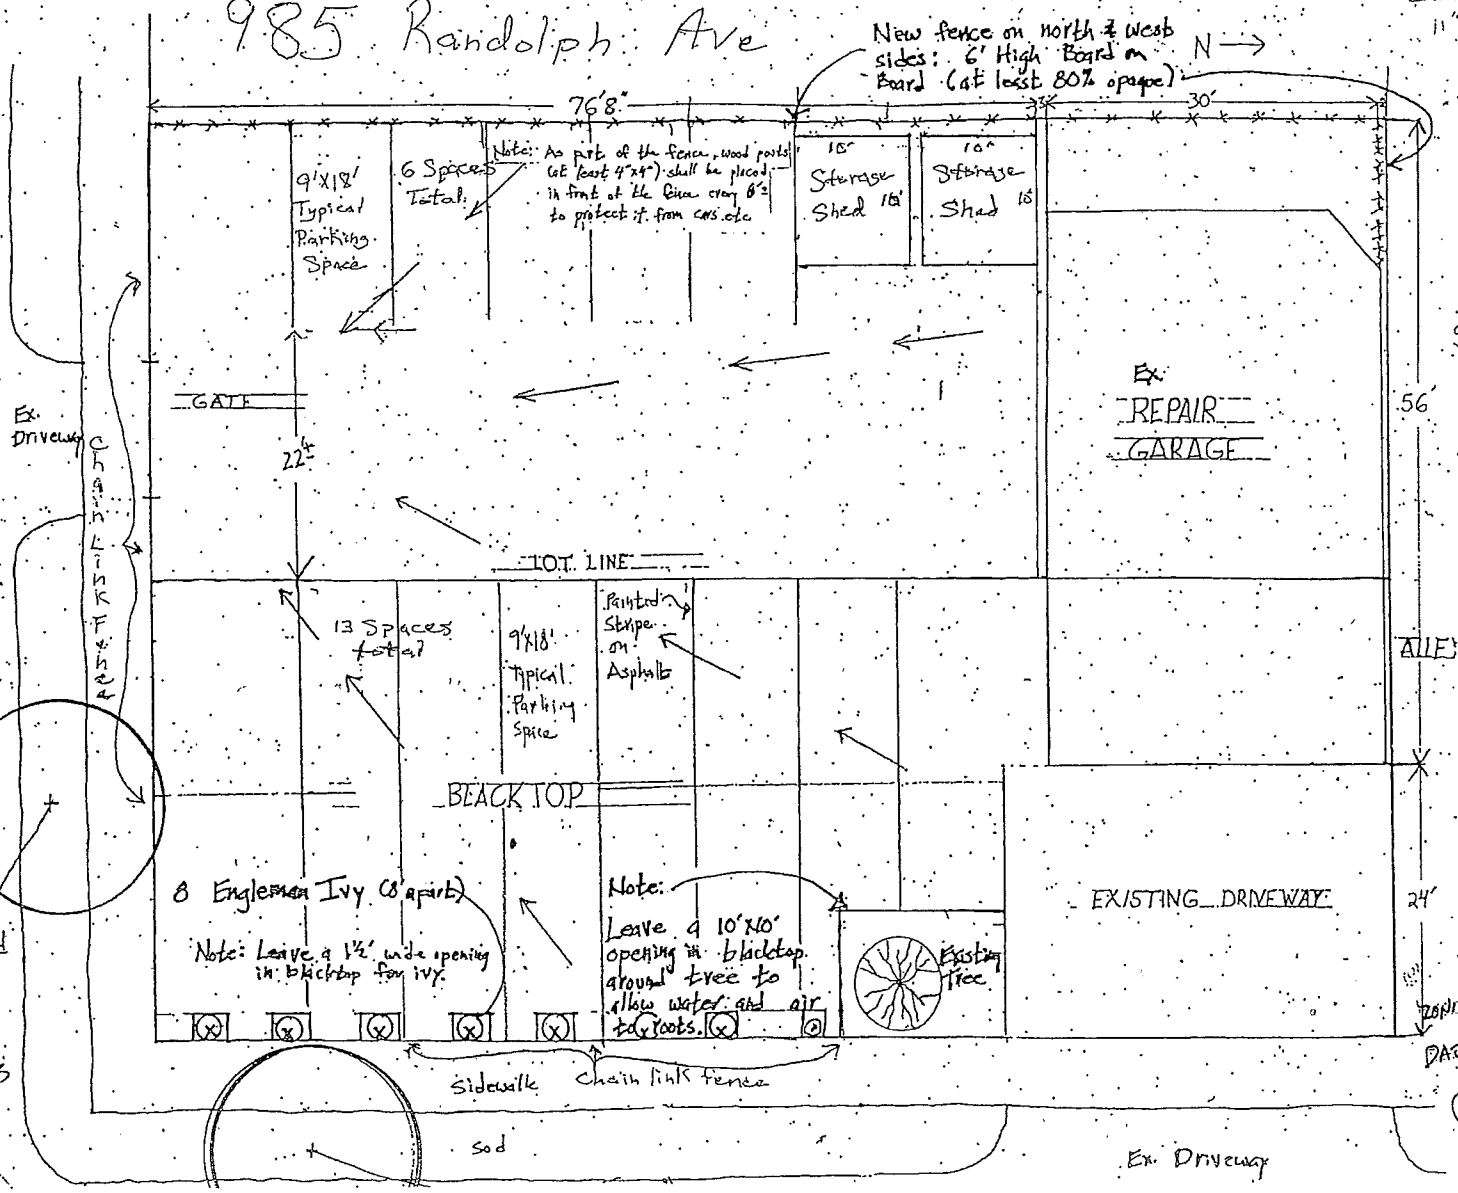 985 Randolph Ave
New fence on north & west
sides: 6' High Board on
Board (at least 80% opaque)
N
11'
76'8"
30'
9'X18'
Typical
Parking
Space
6 Spaces
Total
Note: As part of the fence, wood posts
(at least 4"x4") shall be placed
in front of the fence every 6'±
to protect it from cars etc
10'
Storage
Shed
10'
Storage
Shed
Ex.
REPAIR
GARAGE
56'
GATE
Ex.
Driveway
Chain Link Fence
22'±
LOT LINE
13 Spaces
total
9'X18'
Typical
Parking
Space
Painted
Stripe
on
Asphalt
ALLEY
BLACKTOP
8 Engleman Ivy (8' apart)
Note: Leave a 1½' wide opening
in blacktop for ivy.
Note:
Leave a 10'X10'
opening in blacktop
around tree to
allow water and air
to roots.
Existing
Tree
EXISTING DRIVEWAY
24'
Sidewalk
Chain link fence
sod
Ex. Driveway